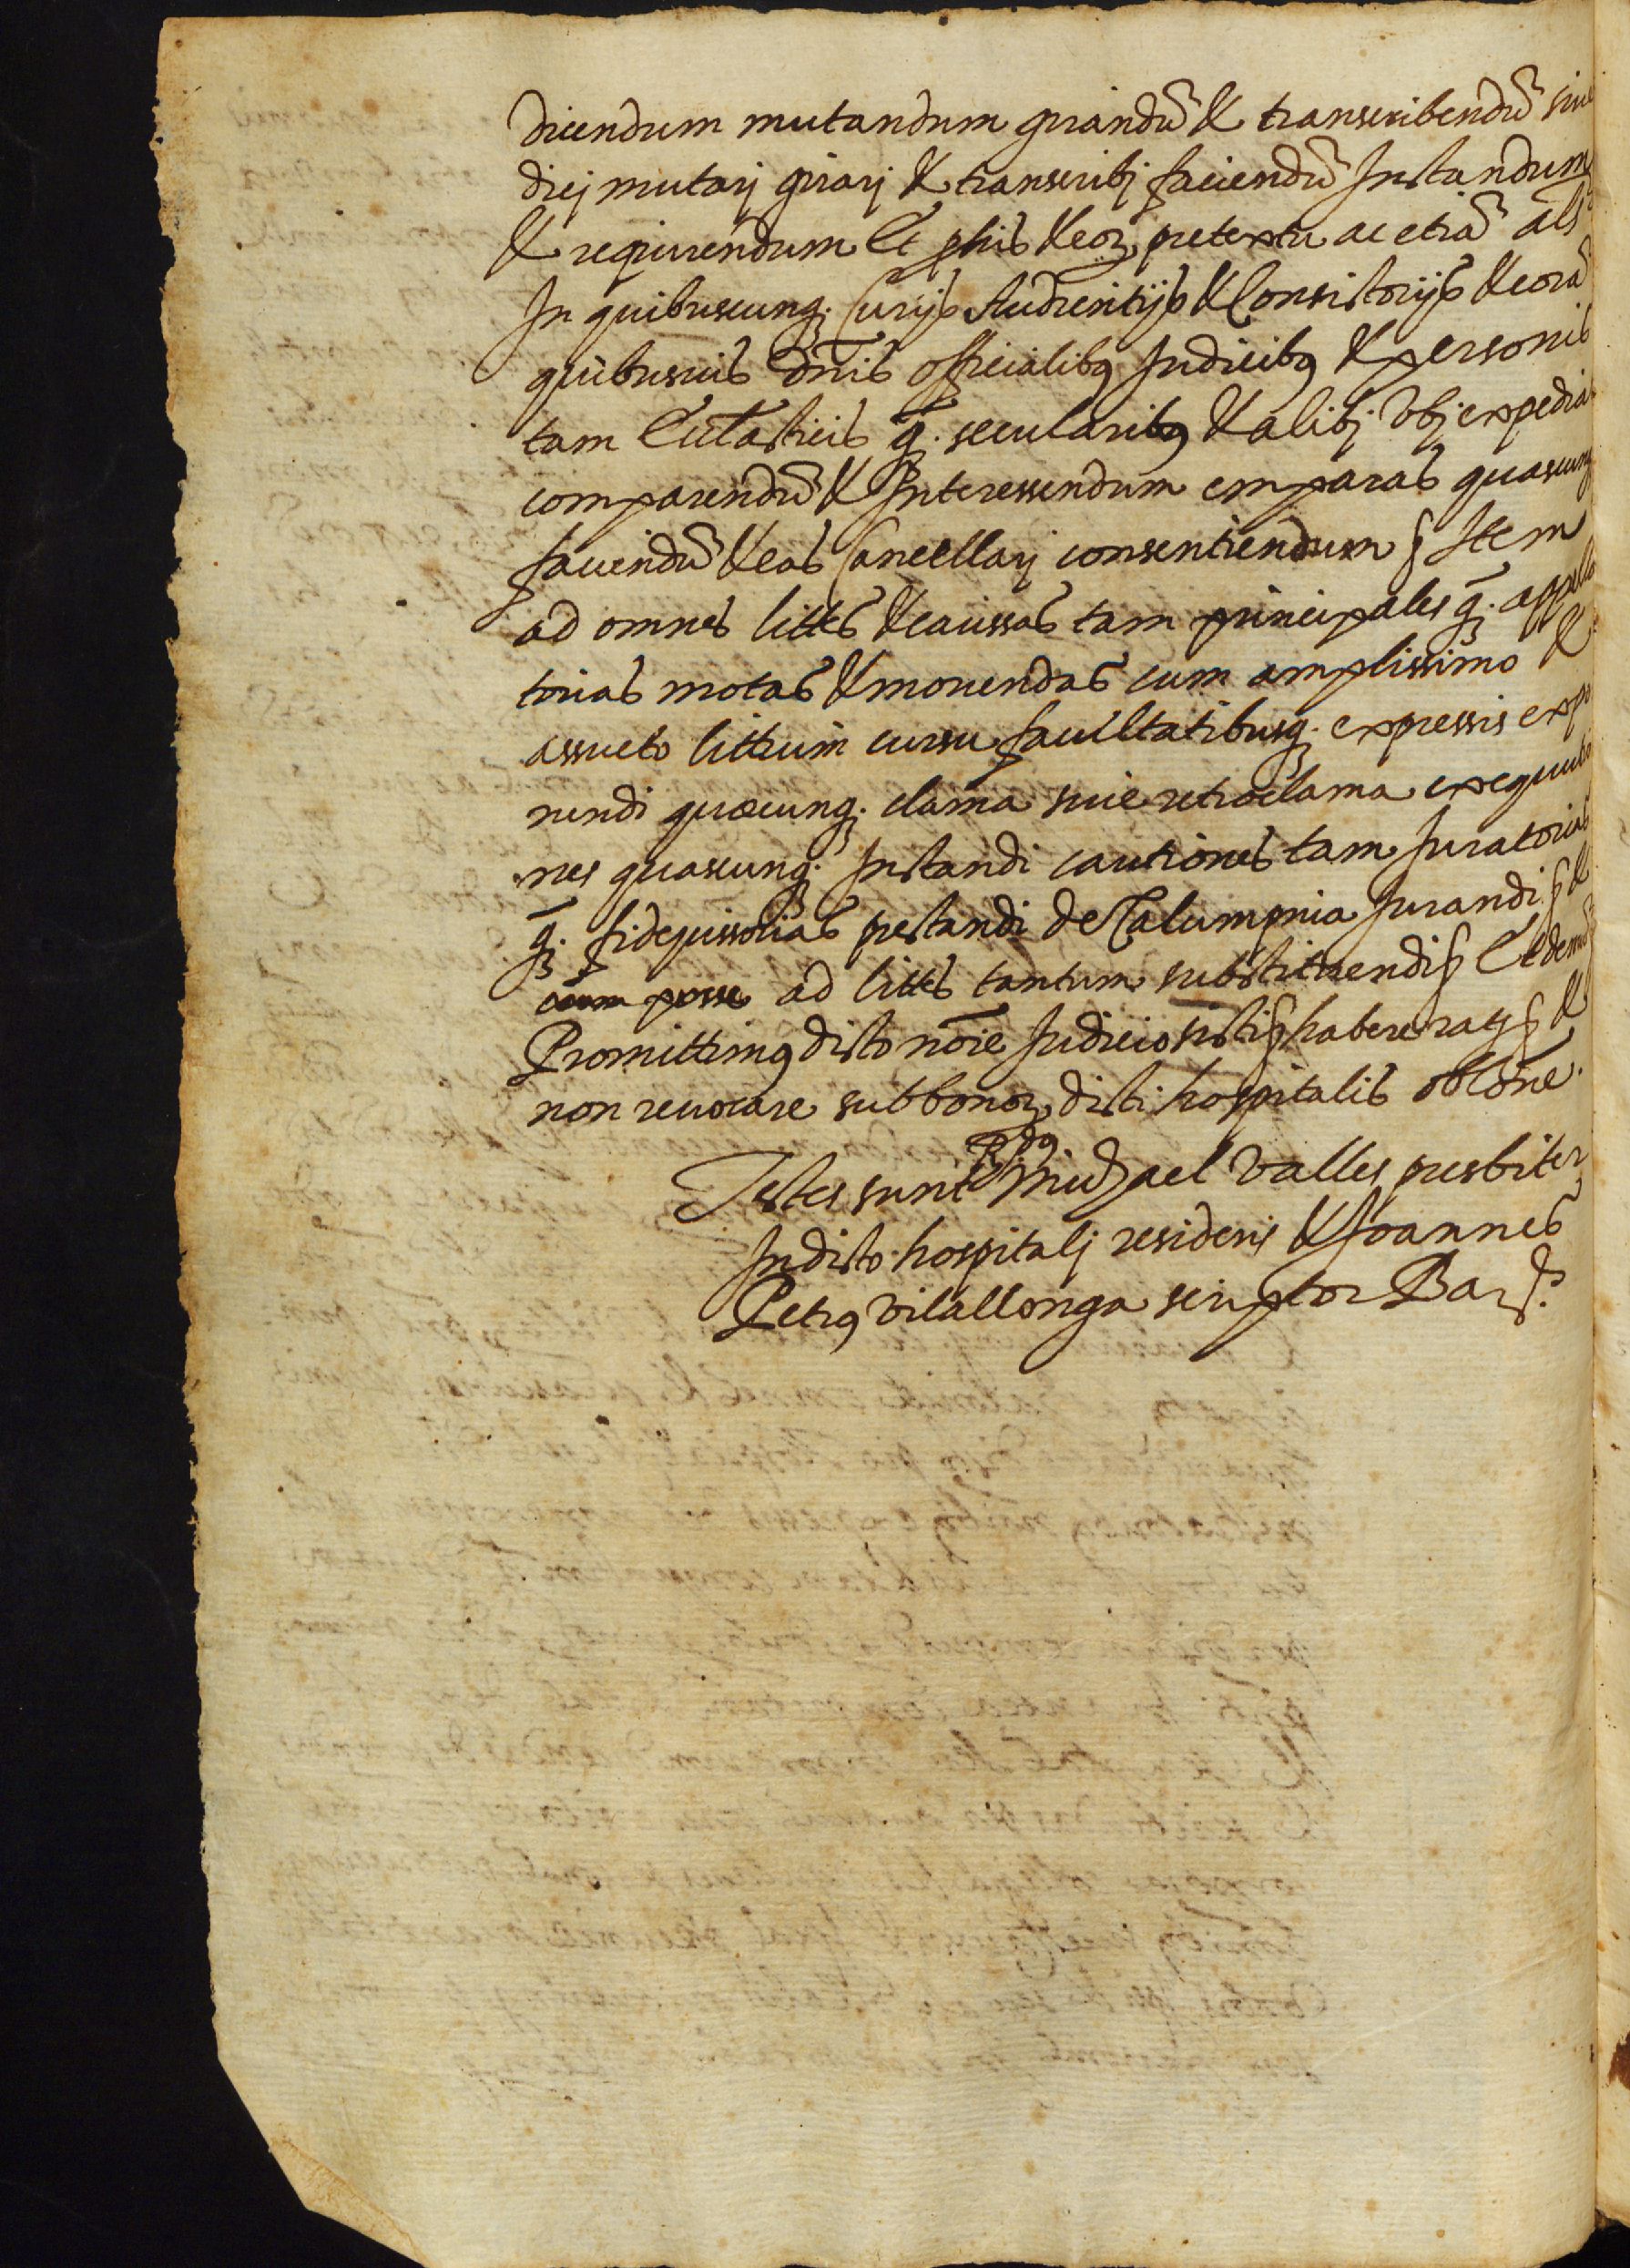 dicendum mutandum girandũ & transcribendũ siue
dicj mutarj girarj & transcribj faciendũ Instandum
& requirendum Et p̃his & eor̃ pretextu ac etiã als
In quibuscunq̃. Curijs Audientijs & Consistorijs & corã
quibusuis dñis officialibꝰ Iudicibꝰ & personis
tam Eccl̃asticis q̃. secularibꝰ & alibj vbj expedia
comparendũ & Interessendum emparas quascunq
faciendũ & eas Cancellarj consentiendum § Item
ad omnes littes & caussas tam principales q̃. appella
torias motas & mouendas cum amplissimo &
assueto littium cursu facultatibusq̃. expressis expo
nendi quæcunq̃. clama siue retroclama exequutio
nes quascunq̃. Instandi cautiones tam Iuratorias
q̃. fideiussorias prestandi de Calumpnia Iurandi § &
cum posse ad littes tantum substituendi § Et demũ
Promittimꝰ dicto nõie Iudicio sisti § habere ratj § &
non reuocare sub bonor̃ dicti hospitalis obl̃one.
Testes sunt Rdꝰ Michael Valles presbiter
In dicto hospitalj residens & Ioannes
Petrꝰ Vilallonga scriptor Bar̃.